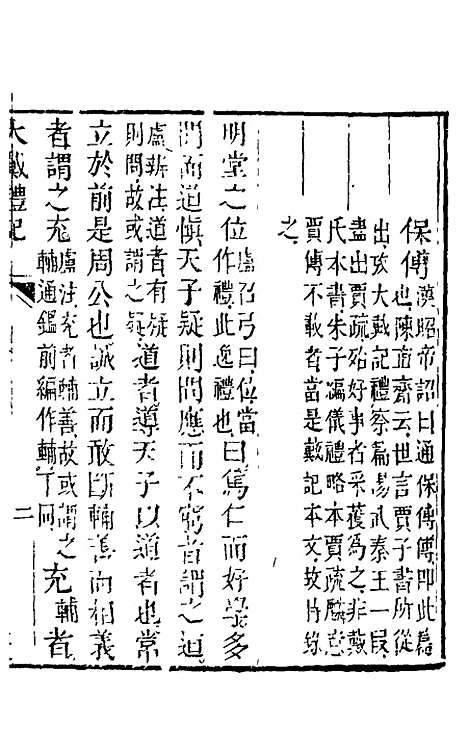 保傅漢昭帝詔曰通保傅傅即此篇
也陳直齋云世言賈子書所從
出攷大戴記禮察篇湯武秦王一段
盡出賈疏殆好事者采獲為之非戴
氏本書朱子編儀禮略本賈疏麟
賈傅不載者當是戴記本文故片錄
之
明堂之位盧召弓曰位當作禮此逸禮也曰篤仁而好學多
聞而道慎天子疑則問應而不窮者謂之道
盧辨注道者有疑則問故或謂之疑道者導天子以道者也常
立於前是周公也誠立而敢斷輔善而相義
者謂之充盧注充者輔善故或謂之充輔輔通鑑前編作輔下同者
大戴禮記
二